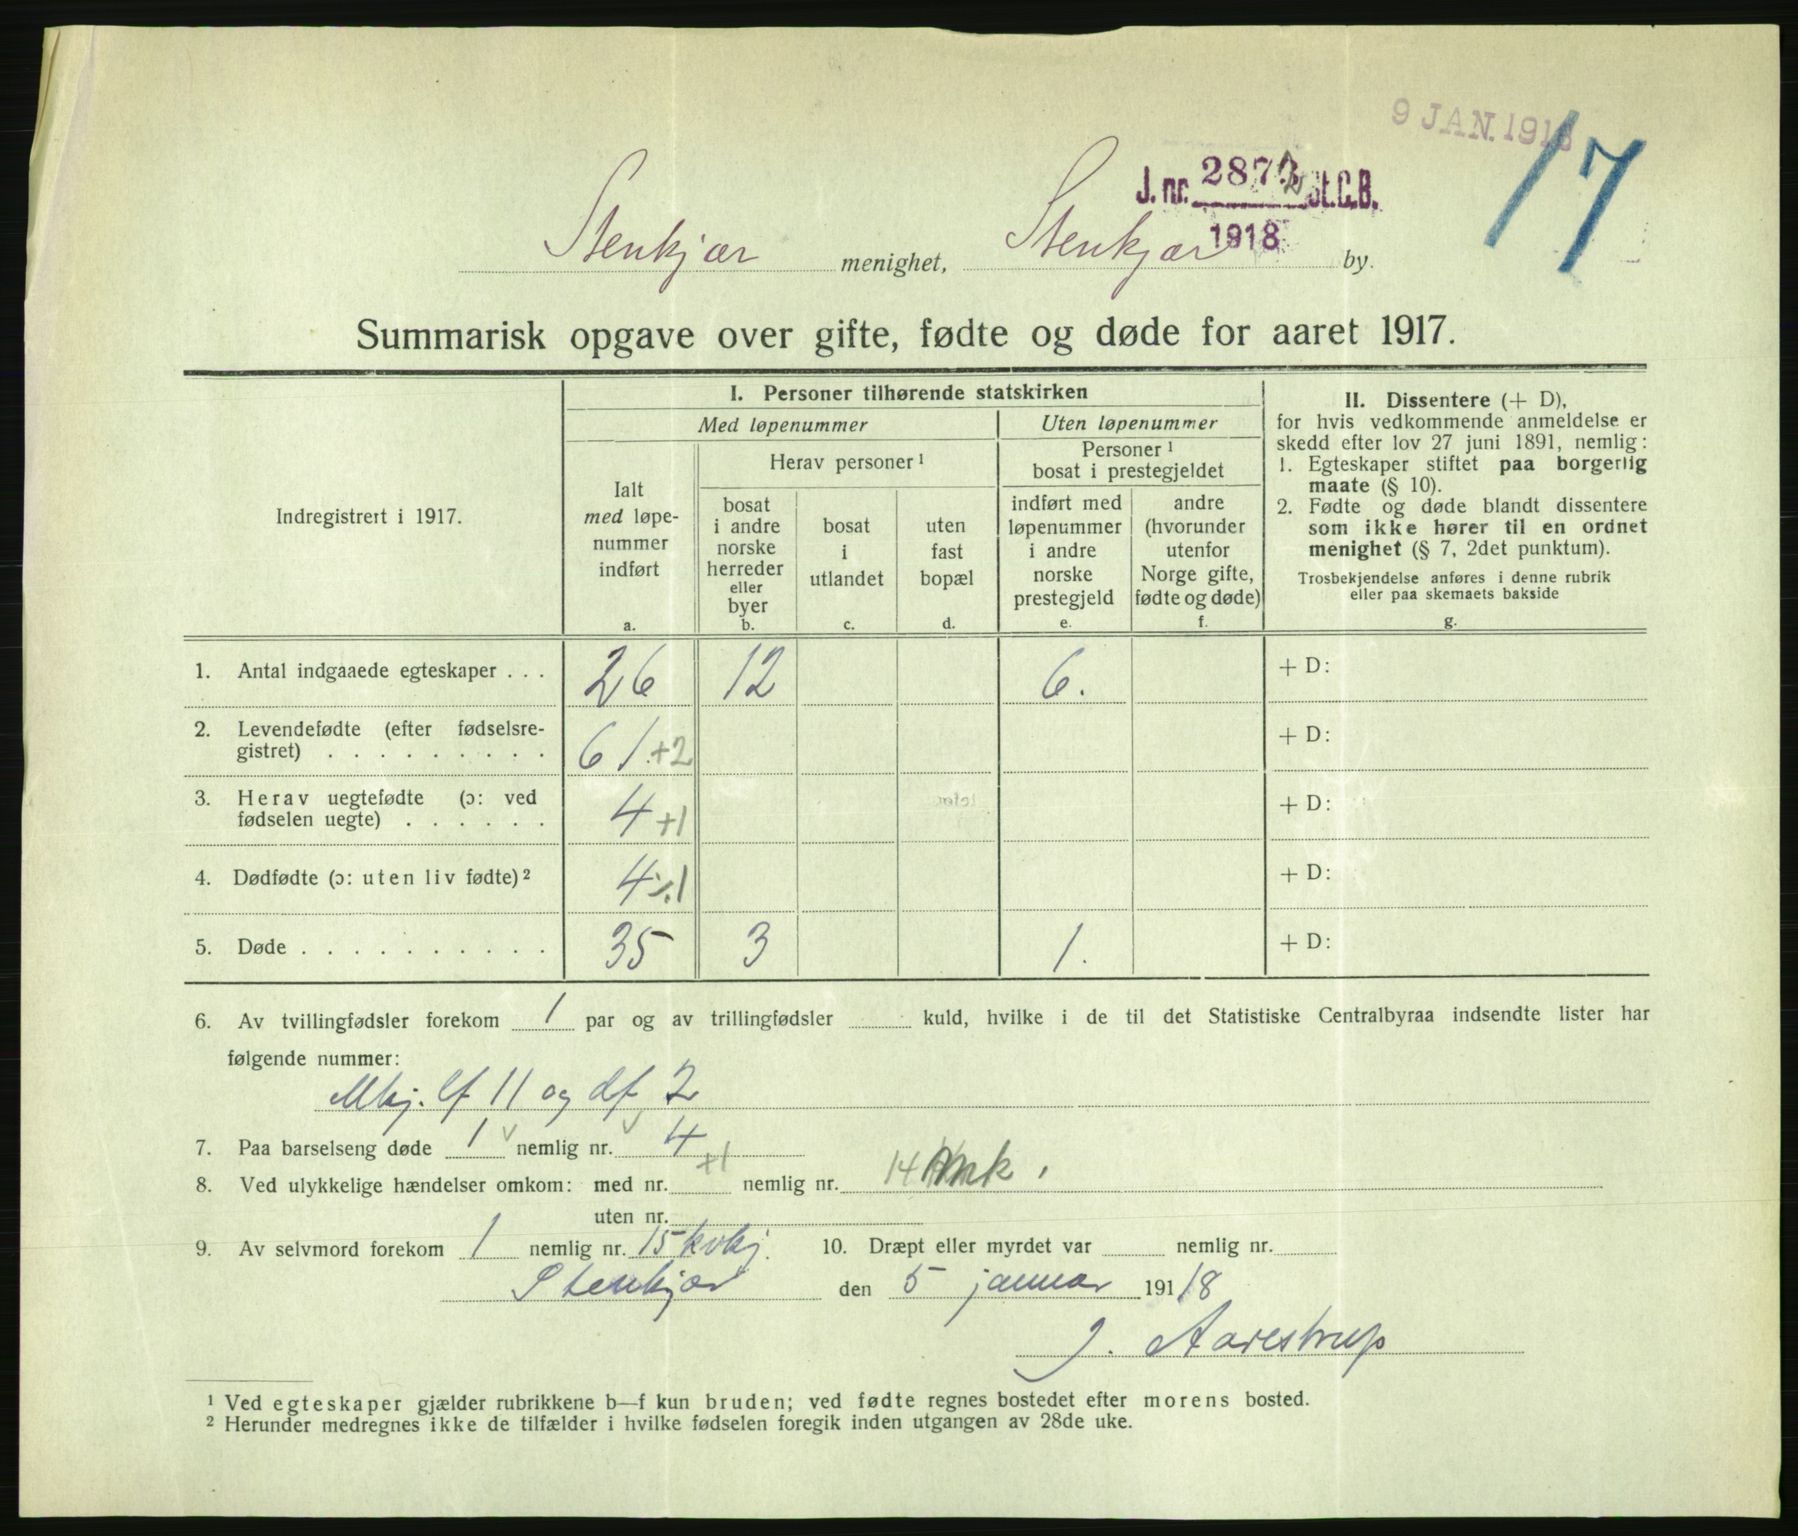 9 JAN. 1918
17
J. nr. 2872 St.C.B.
1918
Stenkjær menighet, Stenkjær by.
Summarisk opgave over gifte, fødte og døde for aaret 1917.
Indregistrert i 1917.
I. Personer tilhørende statskirken
Med løpenummer
Uten løpenummer
Herav personer ¹
Personer ¹
bosat i prestegjeldet
Ialt
med løpe-
nummer
indført
a.
bosat
i andre
norske
herreder
eller
byer
b.
bosat
i
utlandet
c.
uten
fast
bopæl
d.
indført med
løpenummer
i andre
norske
prestegjeld
e.
andre
(hvorunder
utenfor
Norge gifte,
fødte og døde)
f.
II. Dissentere (+ D),
for hvis vedkommende anmeldelse er
skedd efter lov 27 juni 1891, nemlig:
1. Egteskaper stiftet paa borgerlig
maate (§ 10).
2. Fødte og døde blandt dissentere
som ikke hører til en ordnet
menighet (§ 7, 2det punktum).
Trosbekjendelse anføres i denne rubrik
eller paa skemaets bakside
g.
1. Antal indgaaede egteskaper . . . 26 12 6. + D:
2. Levendefødte (efter fødselsre-
gistret) . . . . . . . . . 61 +2 + D:
3. Herav uegtefødte (ɔ: ved
fødselen uegte) . . . . . . 4 +1 + D:
4. Dødfødte (ɔ: uten liv fødte) ² 4 ÷1 + D:
5. Døde . . . . . . . . . . 35 3 1. + D:
6. Av tvillingfødsler forekom 1 par og av trillingfødsler kuld, hvilke i de til det Statistiske Centralbyraa indsendte lister har
følgende nummer:
Mkj. lf 11 og df 2
7. Paa barselseng døde 1 v nemlig nr. v 4
8. Ved ulykkelige hændelser omkom: med nr. +1 nemlig nr. 14 mk
uten nr.
9. Av selvmord forekom 1 nemlig nr. 15 kvkj. 10. Dræpt eller myrdet var nemlig nr.
Stenkjær den 5 januar 1918
J. Aarestrup
¹ Ved egteskaper gjælder rubrikkene b—f kun bruden; ved fødte regnes bostedet efter morens bosted.
² Herunder medregnes ikke de tilfælder i hvilke fødselen foregik inden utgangen av 28de uke.